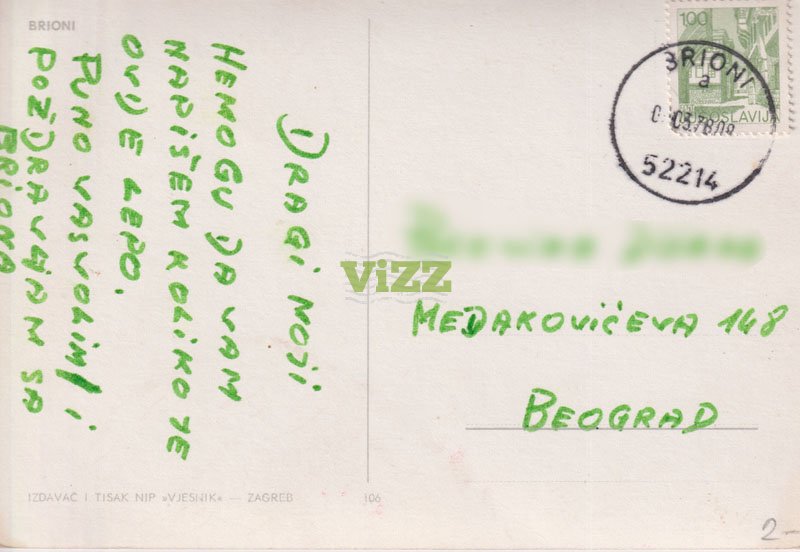 BRIONI
DRAGI MOJI
NEMOGU DA VAM
NAPIŠEM KOLIKO JE
OVDJE LEPO.
PUNO VAS VOLIM I
POZDRAVLJAM SA
BRIONA
IZDAVAČ I TISAK NIP »VJESNIK« — ZAGREB
106
ViZZ
100
JUGOSLAVIJA
BRIONI
a
52214
MEDAKOVIĆEVA 148
BEOGRAD
2-